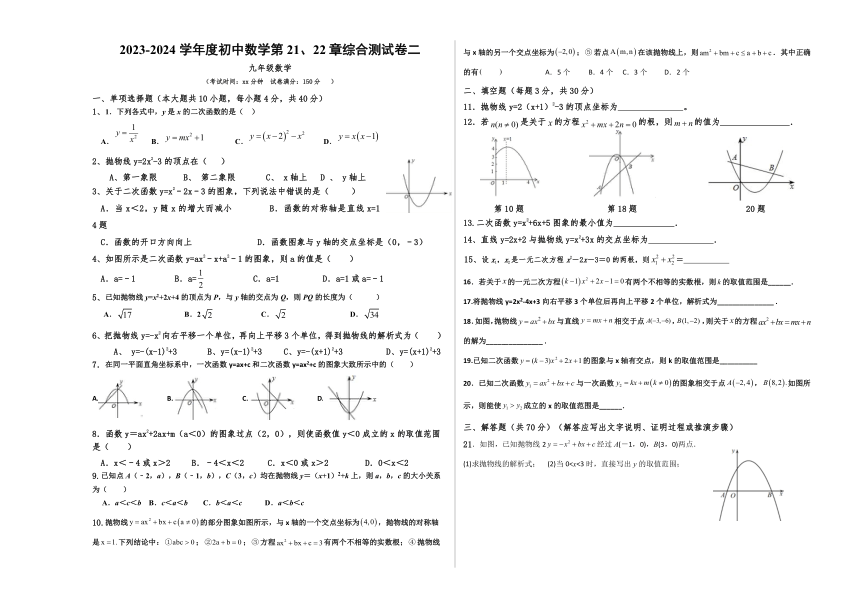 2023-2024 学年度初中数学第 21、22 章综合测试卷二
九年级数学
（考试时间：xx 分钟　试卷满分：150 分　）
一、单项选择题（本大题共 10 小题，每小题 4 分，共 40 分）
1、1．下列各式中，y 是 x 的二次函数的是（　）
A．y=1/x²　B．y=mx²+1　C．y=(x−2)²−x²　D．y=x(x−1)
2、抛物线 y=2x²-3 的顶点在（　　）
A、第一象限　B、 第二象限　C、 x 轴上　D 、 y 轴上
3、关于二次函数 y=x²﹣2x﹣3 的图象，下列说法中错误的是（　　）
A．当 x＜2，y 随 x 的增大而减小　B．函数的对称轴是直线 x=1
4 题
C．函数的开口方向向上　D．函数图象与 y 轴的交点坐标是（0，﹣3）
4、如图所示是二次函数 y=ax²﹣x+a²﹣1 的图象，则 a 的值是（　　）
A．a=﹣1　B．a=1/2　C．a=1　D．a=1 或 a=﹣1
5、已知抛物线 y=x²+2x+4 的顶点为 P，与 y 轴的交点为 Q，则 PQ 的长度为（　　）
A．√17　B．2√2　C．√2　D．√34
6、把抛物线 y=-x² 向右平移一个单位，再向上平移 3 个单位，得到抛物线的解析式为（　　）
A、 y=-(x-1)²+3　B、y=(x-1)²+3　C、y=-(x+1)²+3　D、y=(x+1)²+3
7、在同一平面直角坐标系中，一次函数 y=ax+c 和二次函数 y=ax²+c 的图象大致所示中的（　　）
A.　B.　C.　D.
8．函数 y＝ax²+2ax+m（a＜0）的图象过点（2，0），则使函数值 y＜0 成立的 x 的取值范围
是（　　）
A．x＜﹣4 或 x＞2　B．﹣4＜x＜2　C．x＜0 或 x＞2　D．0＜x＜2
9．已知点 A（﹣2，a），B（﹣1，b），C（3，c）均在抛物线 y＝（x+1）²+k 上，则 a，b，c 的大小关系
为（　　）
A．a＜c＜b　B．c＜a＜b　C．b＜a＜c　D．a＜b＜c
10．抛物线 y=ax²+bx+c(a≠0) 的部分图象如图所示，与 x 轴的一个交点坐标为 (4,0)，抛物线的对称轴
是 x=1．下列结论中：①abc>0；②2a+b=0；③方程 ax²+bx+c=3 有两个不相等的实数根；④抛物线
与 x 轴的另一个交点坐标为 (−2,0)；⑤若点 A(m,n) 在该抛物线上，则 am²+bm+c≤a+b+c．其中正确
的有（　　）　A．5 个　B．4 个　C．3 个　D．2 个
二、填空题（每题 3 分，共 30 分）
11．抛物线 y=2（x+1）²-3 的顶点坐标为______________。
12．若 n(n≠0) 是关于 x 的方程 x²+mx+2n=0 的根，则 m+n 的值为______________．
第 10 题　第 18 题　20 题
13.二次函数 y=x²+6x+5 图象的最小值为______________．
14、直线 y=2x+2 与抛物线 y=x²+3x 的交点坐标为______________．
15、设 x₁，x₂ 是一元二次方程 x²－2x－3＝0 的两根，则 x₁²+x₂²=____________
16．若关于 x 的一元二次方程 (k−1)x²+2x−1=0 有两个不相等的实数根，则 k 的取值范围是______．
17.将抛物线 y=2x²-4x+3 向右平移 3 个单位后再向上平移 2 个单位，解析式为______________．
18．如图，抛物线 y=ax²+bx 与直线 y=mx+n 相交于点 A(−3,−6)，B(1,−2)，则关于 x 的方程 ax²+bx=mx+n
的解为______________．
19.已知二次函数 y=(k−3)x²+2x+1 的图象与 x 轴有交点，则 k 的取值范围是__________
20．已知二次函数 y₁=ax²+bx+c 与一次函数 y₂=kx+m(k≠0) 的图象相交于点 A(−2,4)，B(8,2)．如图所
示，则能使 y₁>y₂ 成立的 x 的取值范围是______．
三、解答题（共 70 分）（解答应写出文字说明、证明过程或推演步骤）
21．如图，已知抛物线 2 y=−x²+bx+c 经过 A(－1，0)，B(3，0)两点．
(1)求抛物线的解析式；　(2)当 0<x<3 时，直接写出 y 的取值范围；